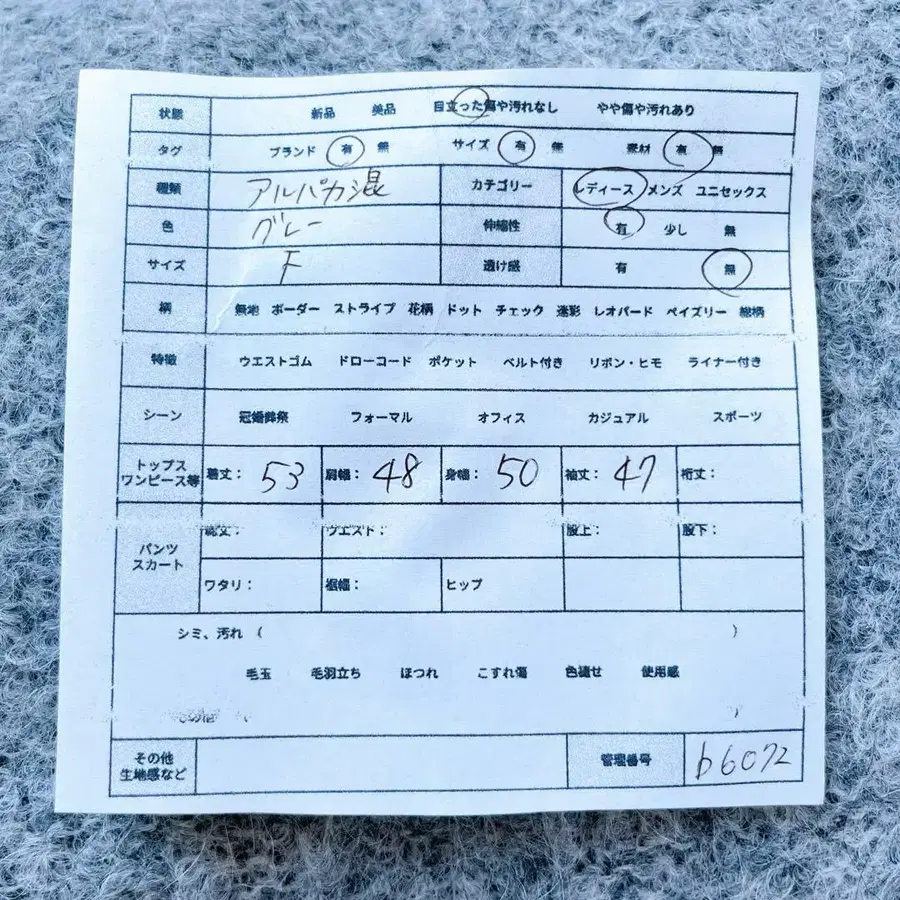 状態 新品 美品 目立った傷や汚れなし やや傷や汚れあり
タグ ブランド 有 無 サイズ 有 無 素材 有 無
種類 アルパカ混 カテゴリー レディース メンズ ユニセックス
色 グレー 伸縮性 有 少し 無
サイズ F 透け感 有 無
柄 無地 ボーダー ストライプ 花柄 ドット チェック 迷彩 レオパード ペイズリー 総柄
特徴 ウエストゴム ドローコード ポケット ベルト付き リボン・ヒモ ライナー付き
シーン 冠婚葬祭 フォーマル オフィス カジュアル スポーツ
トップス
ワンピース等 着丈: 53 肩幅: 48 身幅: 50 袖丈: 47 裄丈:
総丈: ウエスト: 股上: 股下:
パンツ
スカート
ワタリ: 裾幅: ヒップ
シミ、汚れ ( )
毛玉 毛羽立ち ほつれ こすれ傷 色褪せ 使用感
その他 ( )
その他
生地感など 管理番号 b6072